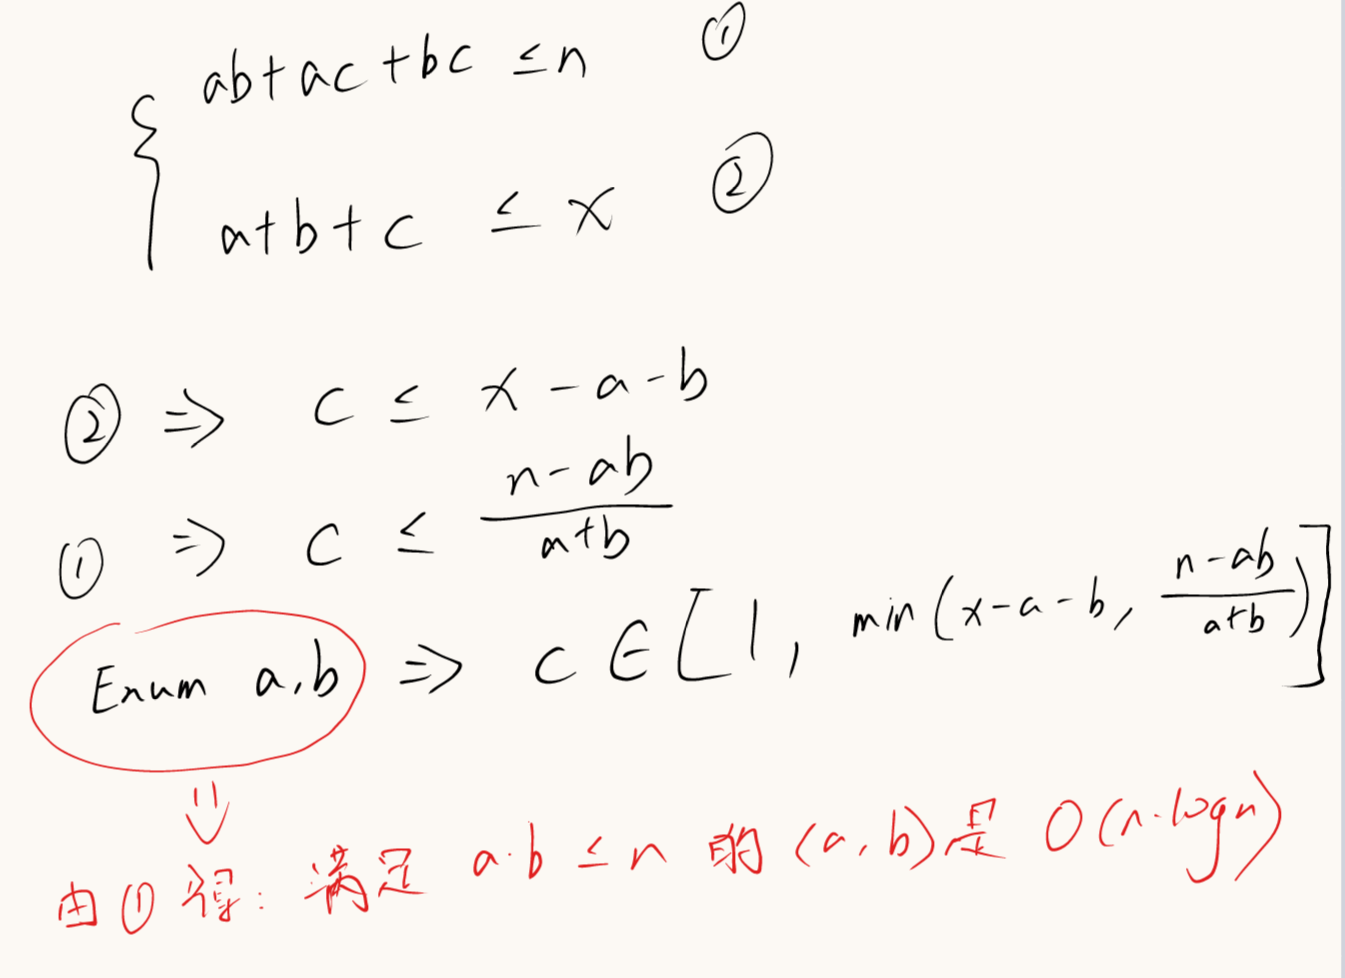 { ab+ac+bc ≤n ①
a+b+c ≤ x ②
② ⇒ c ≤ x-a-b
① ⇒ c ≤ (n-ab)/(a+b)
Enum a,b ⇒ c∈[1, min(x-a-b, (n-ab)/(a+b))]
⇓
由①得: 满足 a·b≤n 的 (a,b)是 O(n·logn)